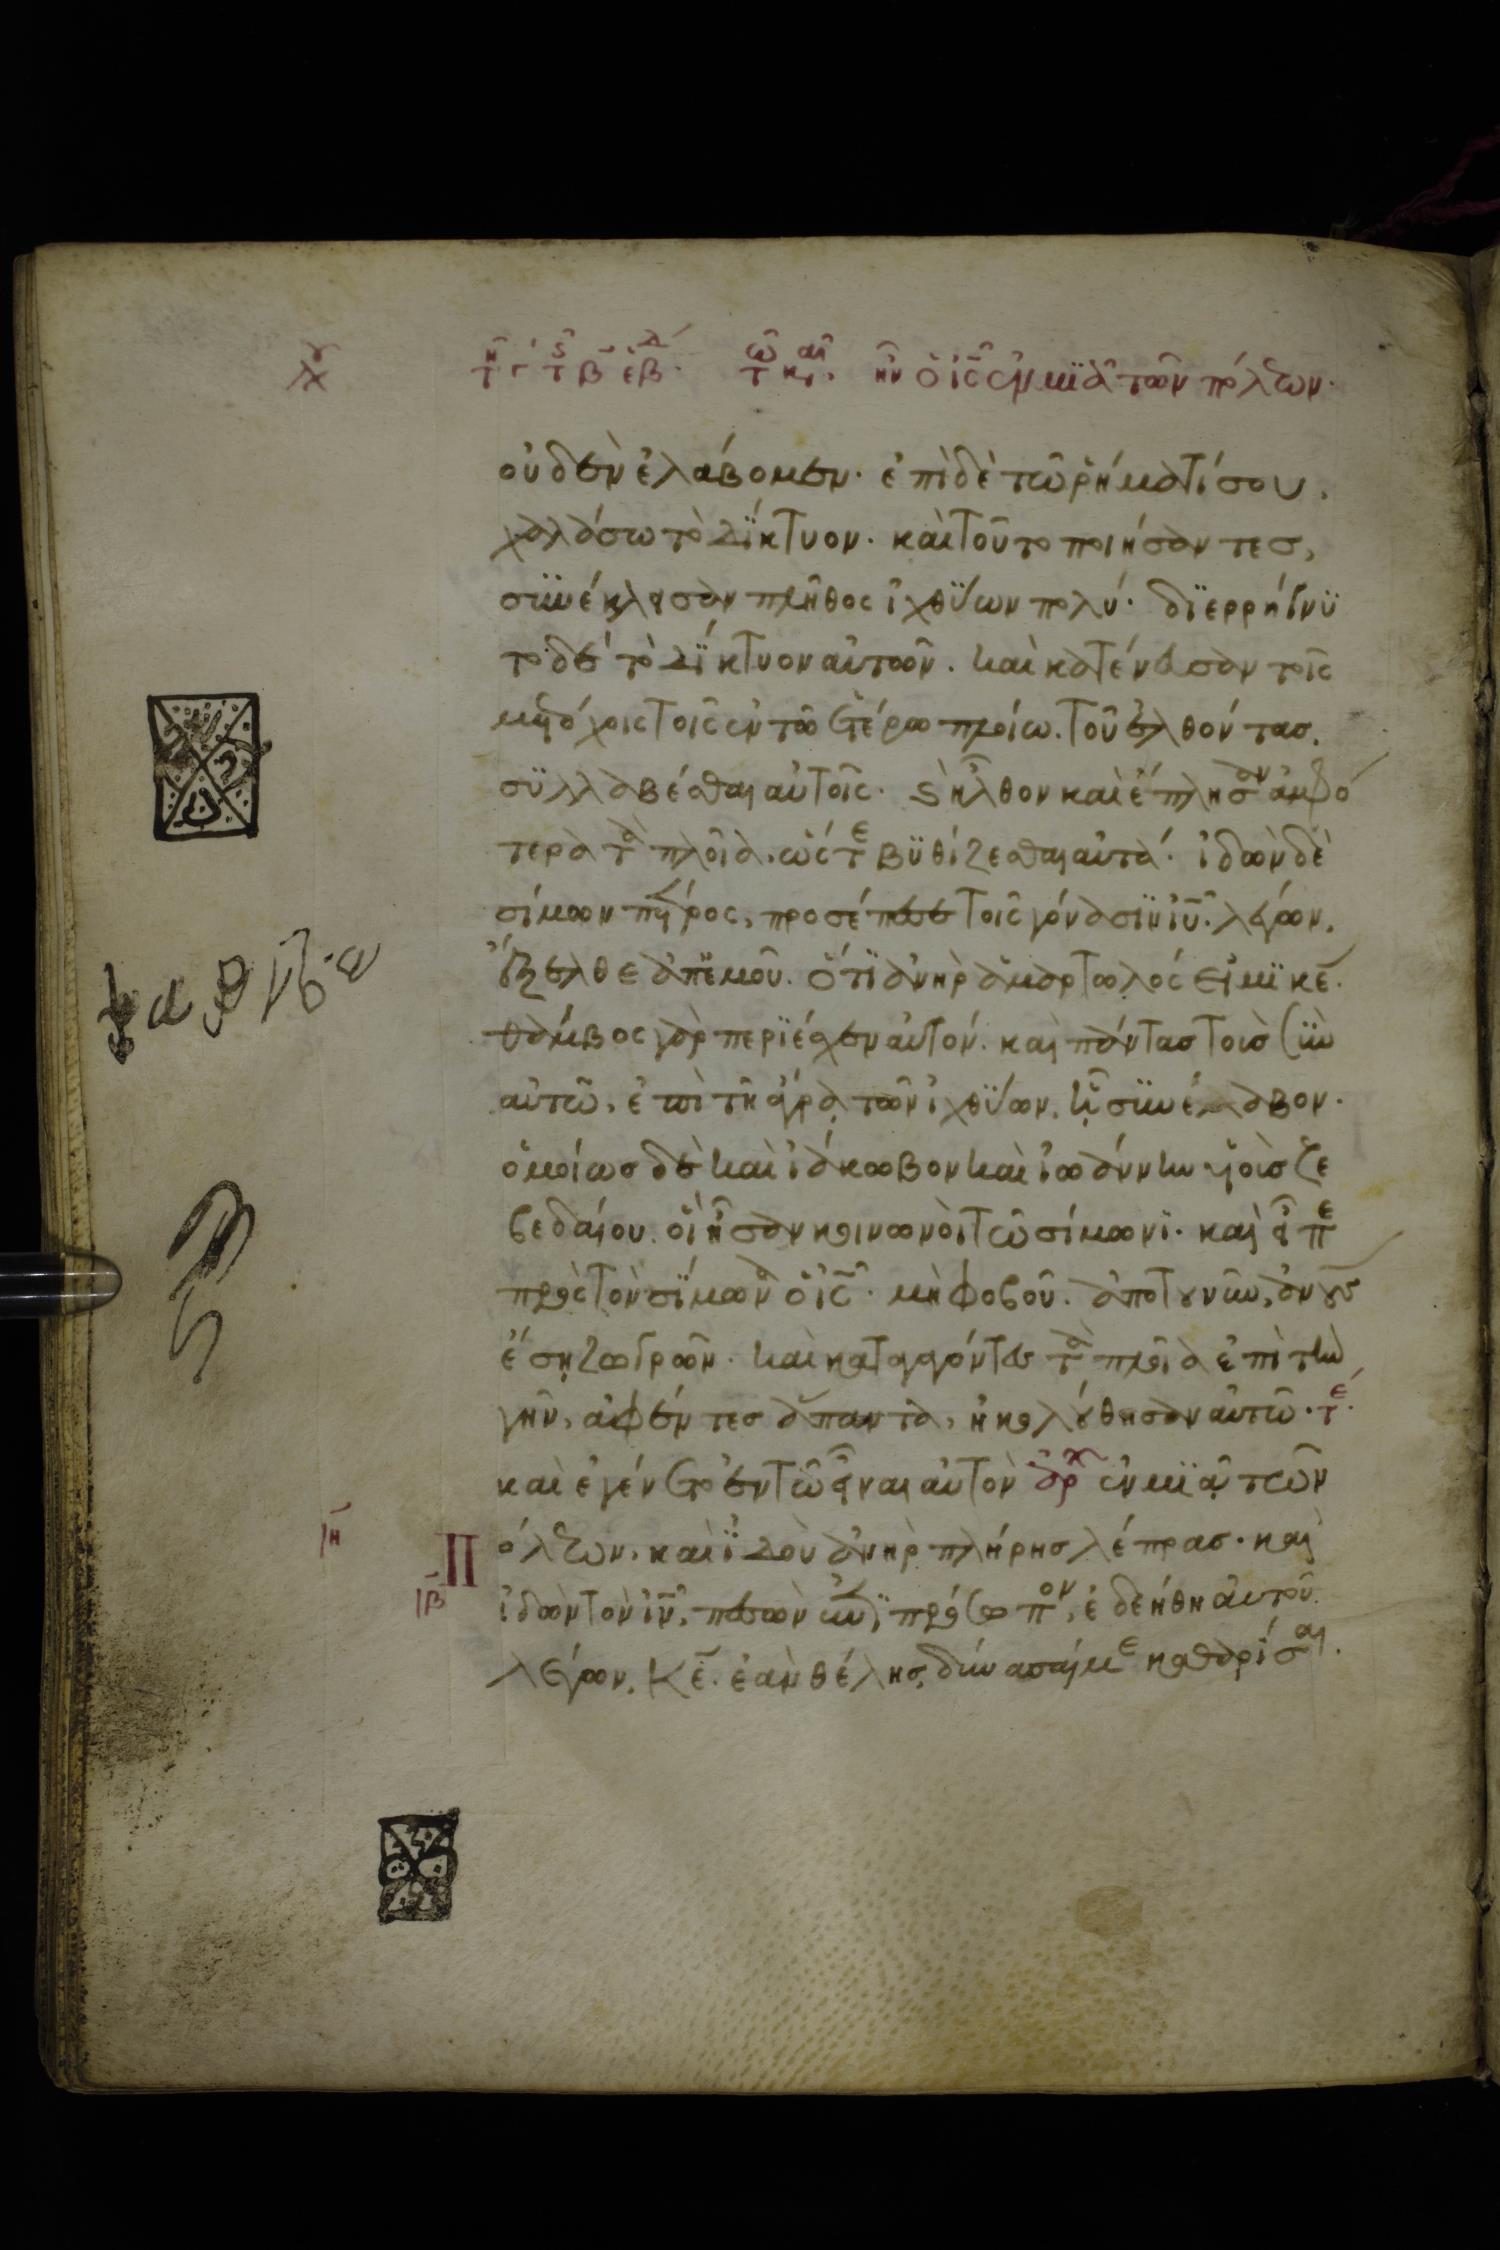 τῆ γ´ τῆς β´ ἑβδ. τῷ καιρ. ἦν ὁ ις ἐν μϊᾶ τῶν πόλεων·
οὐδὲν ἐλάβομεν· ἐπὶ δὲ τῶ ῥήματί σου,
χαλάσω τὸ δΐκτυον· καὶ τοῦτο ποιήσαντες,
συνέκλεισαν πλῆθος ἰχθΰων πολύ· δϊερρήγνϋ
το δὲ τὸ δΐκτυον αὐτῶν. καὶ κατένευσαν τοῖς
μετόχοις τοῖς ἐν τῶ ἑτέρω πλοίω. τοῦ ἐλθόντας,
σϋλλαβέσθαι αὐτοῖς· καὶ ἦλθον καὶ ἔπλησαν ἀμφό
τερα τὰ πλοῖα, ὥστε βϋθίζεσθαι αὐτά· ἰδὼν δὲ
σίμων πέτρος, προσέπεσε τοῖς γόνασϊν ιυ· λέγων,
ἔξελθε ἀπ' ἐμοῦ. ὅτϊ ἀνὴρ ἁμαρτωλός εἰμϊ κε·
θάμβος γὰρ περϊέσχεν αὐτόν. καὶ πάντας τοὺς σὺν
αὐτῶ, ἐπὶ τῆ ἄγρα τῶν ἰχθΰων, ἧ συνέλαβον·
ὁμοίως δὲ καὶ ἰάκωβον καὶ ἰωάννην υἱοὺς ζε
βεδαίου. οἳ ἦσαν κοινωνοὶ τῶ σίμωνϊ· καὶ εἶπε
πρὸς τὸν σΐμωνα ὁ ις· μὴ φοβοῦ. ἀπο τοῦ νῦν, ἀνους
ἔση ζωγρῶν· καὶ καταγαγόντες τὰ πλοῖα ἐπὶ τὴν
γῆν, ἀφέντες ἅπαντα, ἠκολούθησαν αὐτῶ· τέ·
καὶ ἐγένετο ἐν τῶ εἶναι αὐτὸν ἀρχ ἐν μϊᾶ τῶν
ιη πόλεων, καὶ ϊδοὺ ἀνὴρ πλήρης λέπρας· καὶ
ιβ ἰδὼν τὸν ιν, πεσὼν ἐπϊ πρόσωπον, ἐδεήθη αὐτοῦ
λέγων, κε· ἐὰν θέλης, δύνασαί με καθαρίσαι.